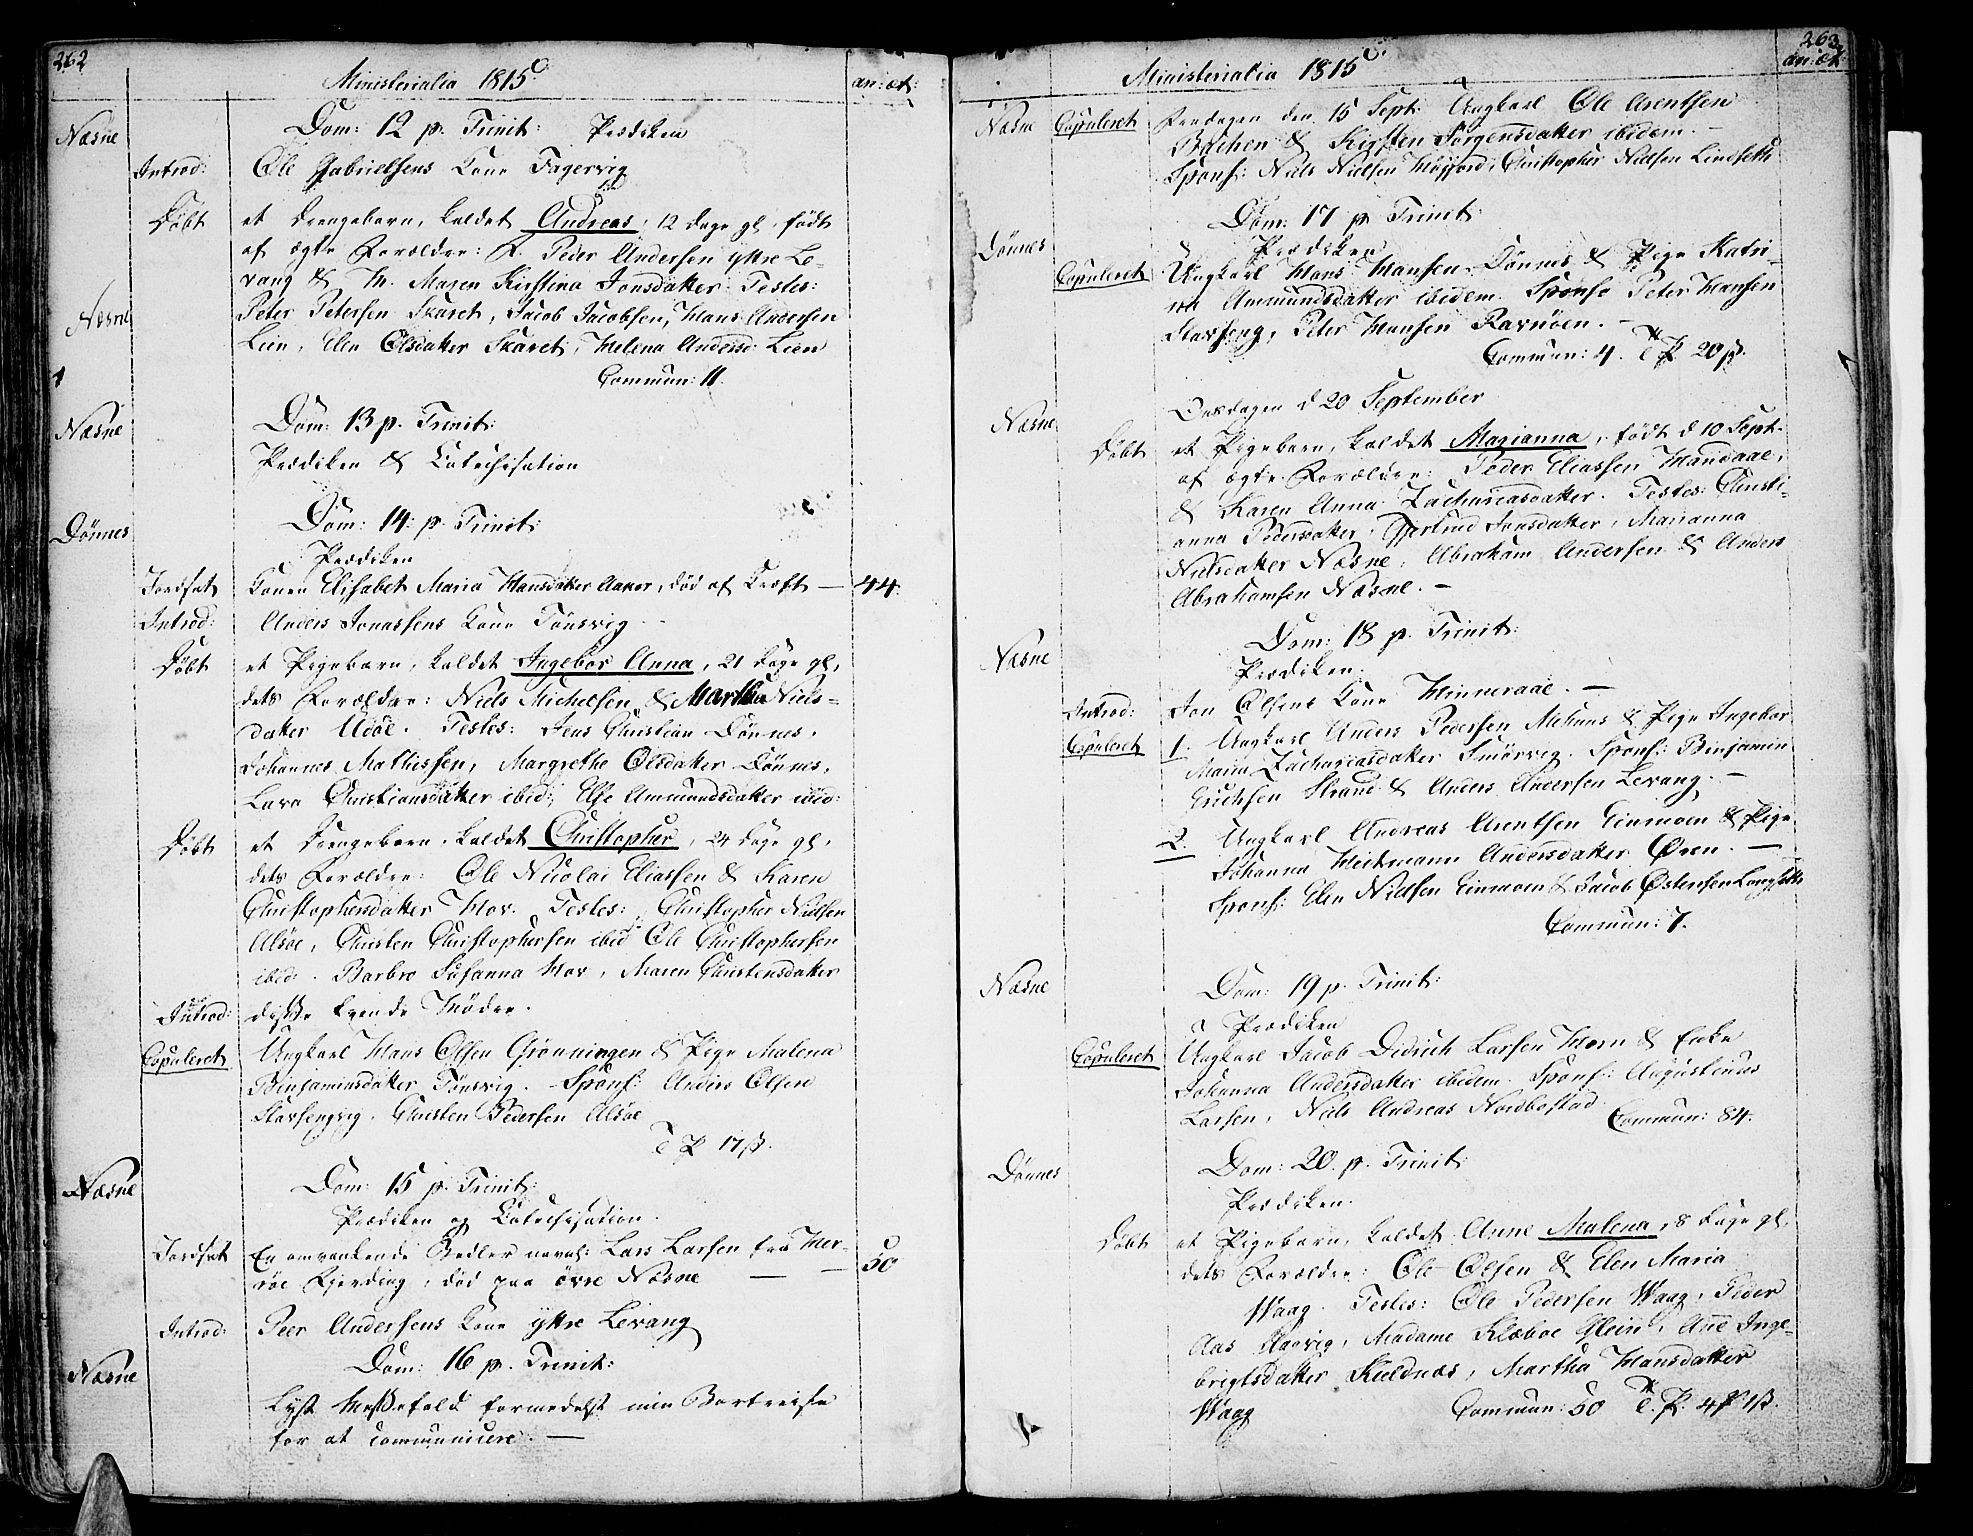 262
Ministerialia 1815
an: æt:
Næsne Dom: 12 p. Trinit: Prædiken
Introd: Ole Gabrielsens Kone Fagervig
Døbt et Drengebarn, kaldet Andreas, 12 Dage gl. født
af ægte Forældre: Peder Andersen yttre Le-
vang & Maren Kirstina Jonsdatter. Testes:
Næsne Peter Petersen Skaret, Jacob Jacobsen, Hans Andersen
Lien, Elen Olsdatter Skaret, Helena Andersd: Lien
Commun: 11.
Næsne Dom: 13 p. Trinit:
Prædiken & Catechisation
Dønnes Dom: 14. p. Trinit:
Prædiken
Jordfæt Konen Elisabet Maria Hansdatter, død af Kræft — 44.
Introd: Anders Jonassens Kone Tønsvig
Døbt et Pigebarn, kaldet Ingebor Anna, 21 Dage gl,
dets Forældre: Niels Michelsen & Martha Niels-
datter Udøe. Testes: Jens Christian Dønnes,
Johannes Mathissen, Margrethe Olsdatter Dønnes,
Lava Christiansdatter ibid:, Else Ammundsdatter ibid:
Døbt et Drengebarn, kaldet Christopher, 24 Dage gl,
dets Forældre: Ole Nicolai Eliassen & Karen
Christophersdatter Hov. Testes: Christopher Nielsen
Alsøe, Christen Christophersen ibid Ole Christophersen
ibid. Barbro Susanna Hov, Maren Christensdatter
Introd: disse tvende Mødre.
Copuleret Ungkarl Hans Olsen Grønningen & Pige Malena
Binjaminsdatter Tønsvig. Spons: Anders Olsen
Stavsengvig, Christen Pedersen Alsøe
T P 17ß.
Næsne Dom: 15 p. Trinit:
Prædiken og Catechisation.
Jordfæt En omvankende Betler navnl: Lars Larsen fra Her-
røe Fjerding, død paa øvre Næsne — 50
Introd: Peer Andersens Kone yttre Levang
Næsne Dom: 16 p. Trinit:
Lyst Messefald formedelst min Bortreise
for at communicere. —
263
Ministerialia 1815
an: æt:
Næsne Copuleret Fredagen den 15 Sept: Ungkarl Ole Arentsen
Bachen & Kirsten Jørgensdatter ibidem. —
Spons: Niels Nielsen Høyfjord, Christopher Nielsen Lindseth
Dom: 17 p Trinit:
Dønnes Prædiken
Copuleret Ungkarl Hans Hansen Dønnes & Pige Katri-
na Ammundsdatter ibidem. Spons: Peter Hansen
Stavseng, Peter Hansen Ravnøen. —
Commun: 4. T P 20ß.
Næsne Onsdagen d 20 September
Døbt et Pigebarn, kaldet Marianna, født d 10 Sept.
af ægte Forældre: Peder Eliassen Handaae,
& Karen Anna Zachariasdatter. Testes: Christi-
anna Pedersdatter, Gjertrud Jonsdatter, Marianna
Nielsdatter Næsne, Abraham Andersen & Anders
Abrahamsen Næsne. —
Dom: 18 p. Trinit:
Næsne Prædiken.
Introd: Jon Olsens Kone Hinneraae. —
Copuleret 1. Ungkarl Anders Pedersen & Pige Ingebor
Maria Zachariasdatter Smørvig. Spons: Binjamin
Erichsen Strand & Anders Andersen Levang. —
2. Ungkarl Andreas Arentsen Einmoen & Pige
Johanna Andersdatter Øren. —
Spons: Elen Nielsen Einmoen & Jacob Østensen Langseth
Commun: 7.
Næsne Dom: 19 p. Trinit:
Prædiken
Copuleret Ungkarl Jacob Didrich Larsen Horn & Enke
Johanna Andersdatter ibidem. Spons: Augustinus
Larsen, Niels Andreas Nordbostad
Commun: 84.
Dønnes Dom: 20. p. Trinit:
Prædiken.
Døbt et Pigebarn, kaldet Anne Malena, 8 Dage gl,
dets Forældre: Ole Olsen & Elen Maria
Waag. Testes: Ole Pedersen Waag, Peder
Aas, Madame Klæboe Glein, Ane Inge-
brigtsdatter Kieldnæs, Martha Hansdatter
Waag Commun: 50 T. P. 4 1ß.